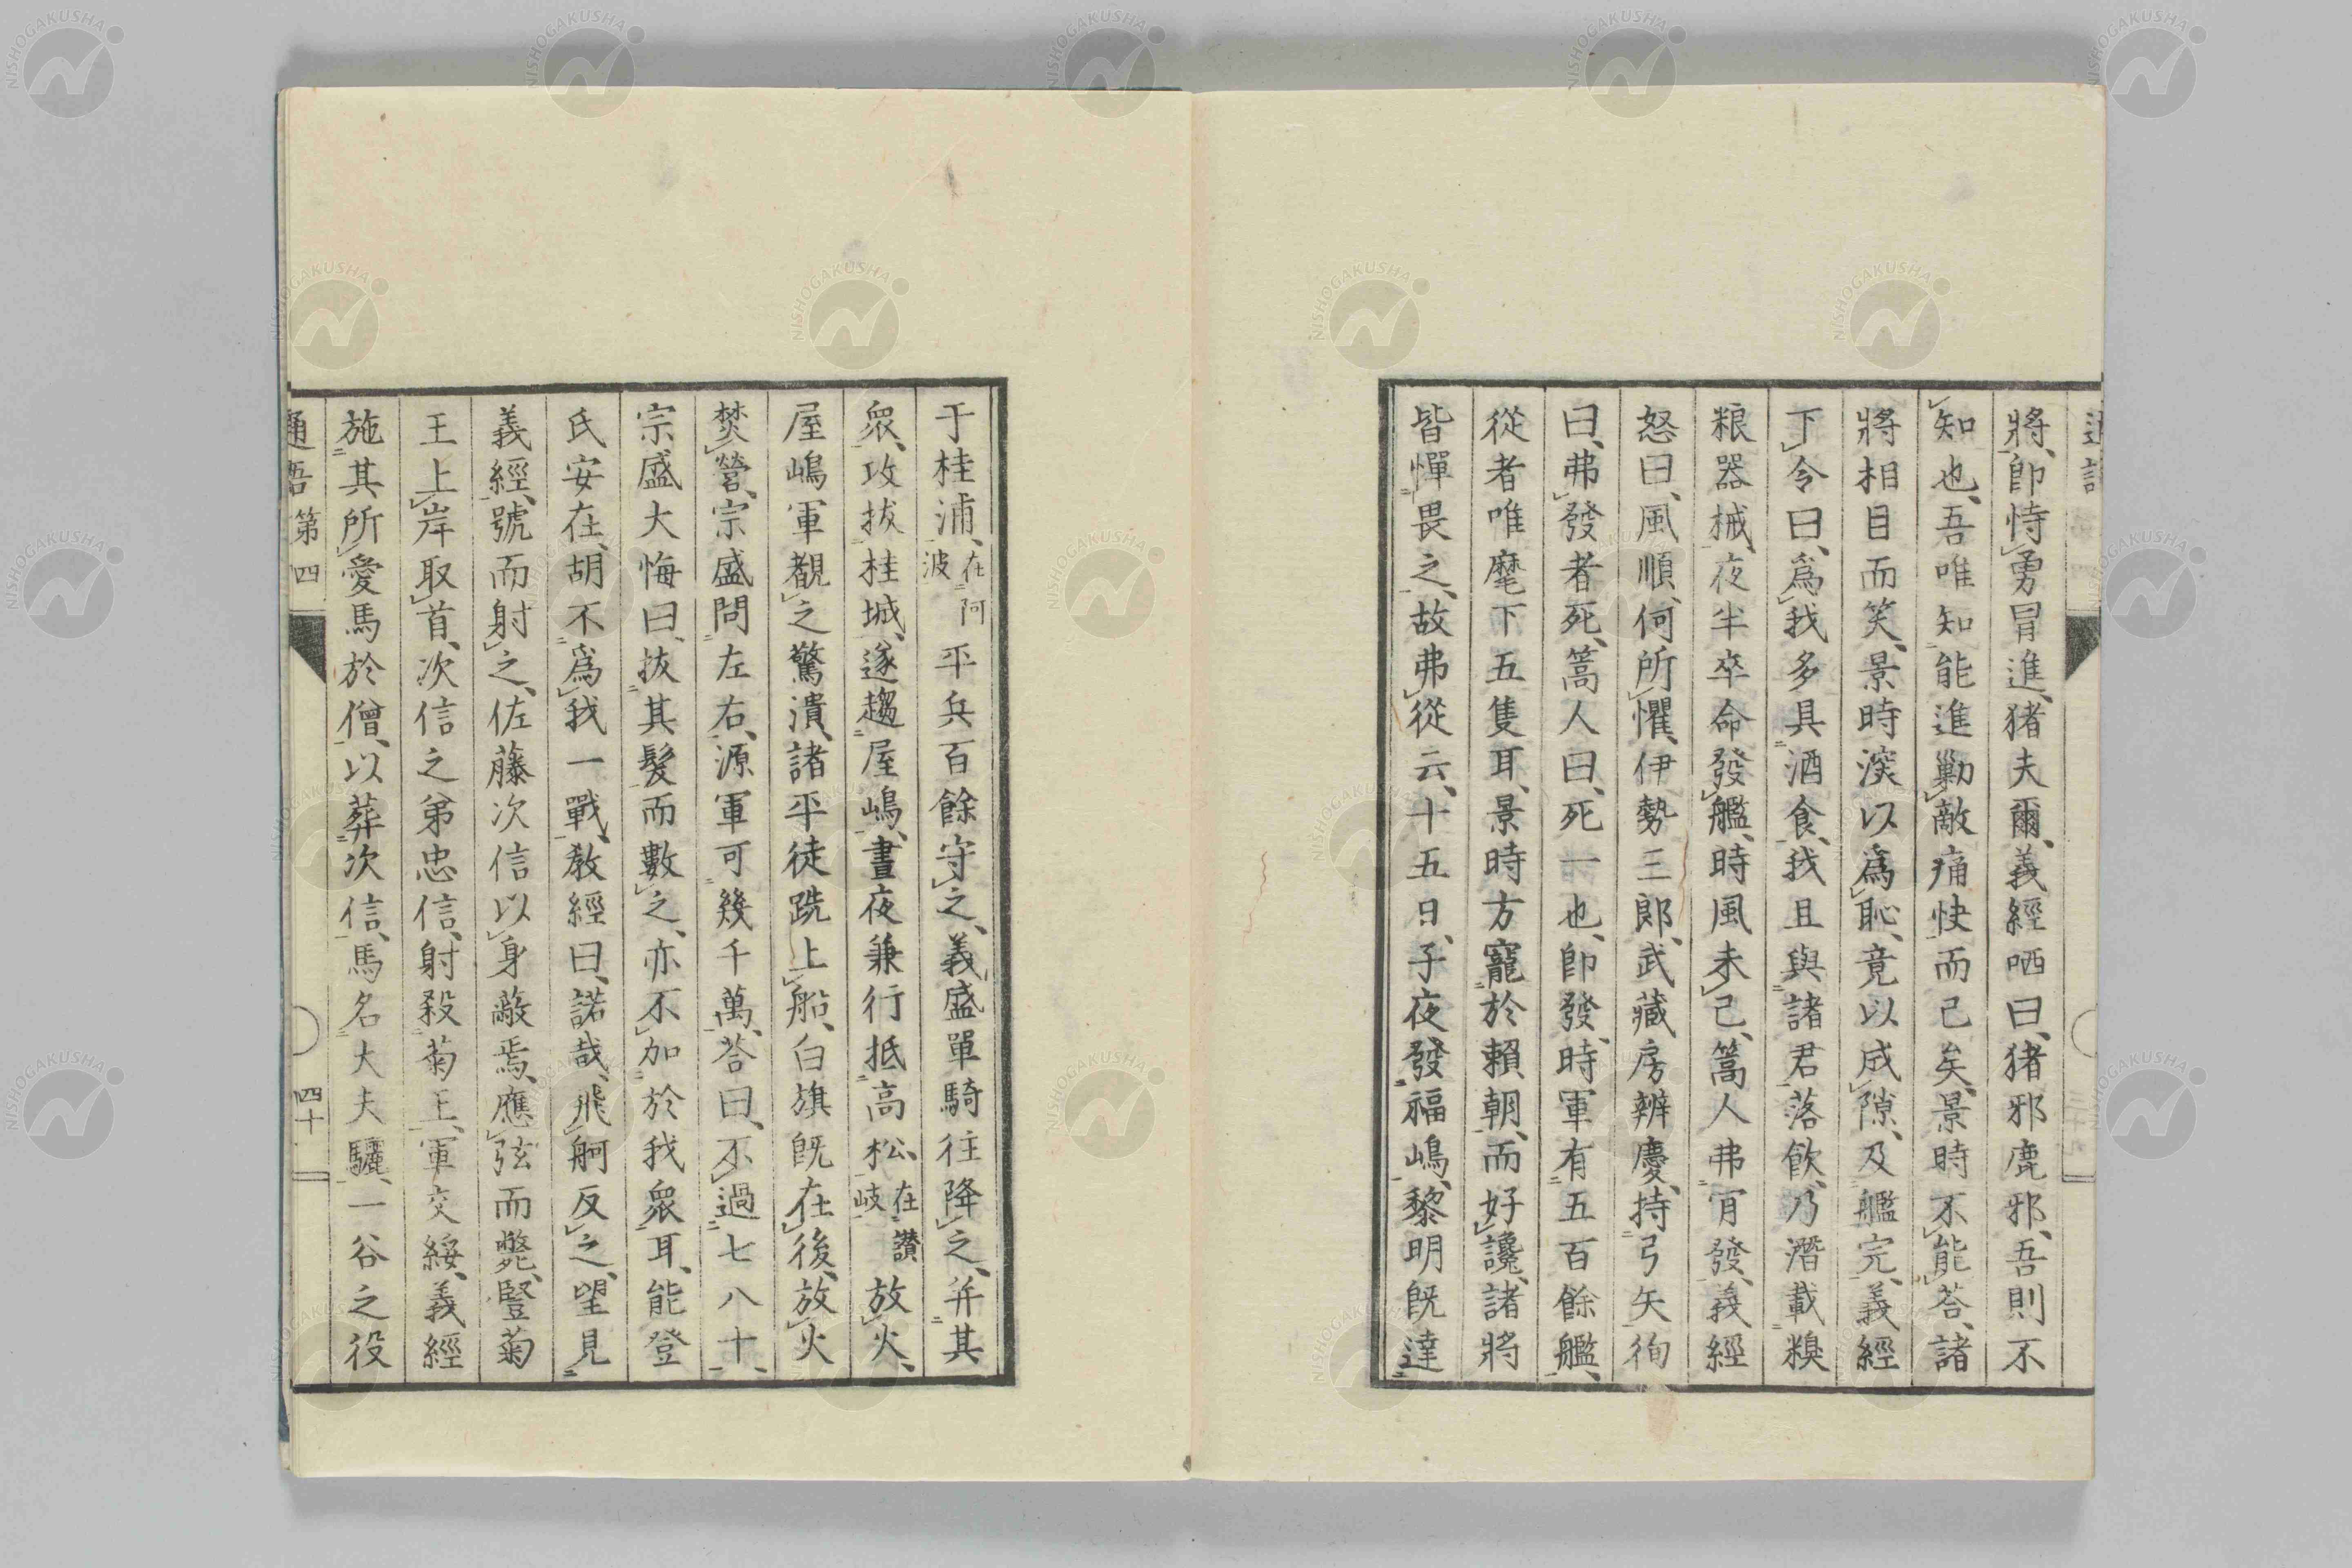 將、即恃勇冒進、猪夫爾、義經哂曰、猪邪鹿邪、吾則不
知也、吾唯知能進勦敵痛快而已矣、景時不能荅、諸
將相目而笑、景時深以爲恥、竟以成隙、及艦完、義經
下令曰、爲我多具酒食、我且與諸君落飲、乃潛載糗
粮器械、夜半卒命發艦、時風未已、篙人弗肯發、義經
怒曰、風順、何所懼、伊勢三郎、武藏房辨慶、持弓矢徇
曰、弗發者死、篙人曰、死一也、即發、時軍有五百餘艦、
從者唯麾下五隻耳、景時方寵於賴朝、而好讒、諸將
皆憚畏之、故弗從云、十五日、子夜發福嶋、黎明既達
于桂浦、在阿波平兵百餘守之、義盛單騎往降之、并其
衆、攻拔桂城、遂趨屋嶋、晝夜兼行抵高松、在讃岐放火、
屋嶋軍觀之驚潰、諸平徒跣上船、白旗既在後、放火
焚營、宗盛問左右、源軍可幾千萬、荅曰、不過七八十、
宗盛大悔曰、拔其髮而數之、亦不加於我衆耳、能登
氏安在、胡不爲我一戰、教經曰、諾哉、飛舸反之、望見
義經、號而射之、佐藤次信以身蔽焉、應弦而斃、豎菊
王上岸取首、次信之弟忠信、射殺菊王、軍交綏、義經
施其所愛馬於僧、以葬次信、馬名大夫驪、一谷之役
通語 第四 四十
NISHOGAKUSHA